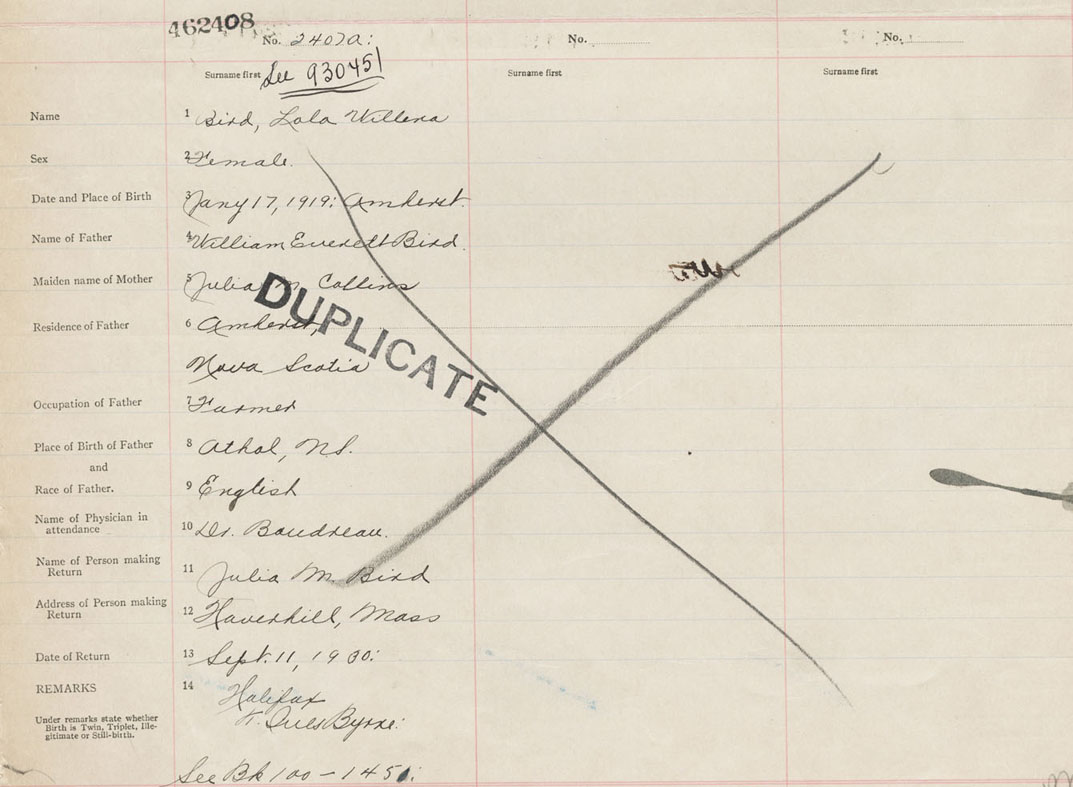 462408
No. 2407a: No. No.
Surname first See 930451 Surname first Surname first
Name 1 Bird, Lola Willena
Sex 2 Female.
Date and Place of Birth 3 Jany 17, 1919: Amherst.
Name of Father 4 William Everett Bird.
Maiden name of Mother 5 Julia M. Collins
DUPLICATE
Residence of Father 6 Amherst,
Nova Scotia
Occupation of Father 7 Farmer
Place of Birth of Father 8 Athol, N.S.
and
Race of Father. 9 English
Name of Physician in
attendance 10 Dr. Boudreau.
Name of Person making
Return 11 Julia M. Bird
Address of Person making
Return 12 Haverhill, Mass
Date of Return 13 Sept. 11, 1930:
REMARKS 14 Halifax
Byrne:
Under remarks state whether
Birth is Twin, Triplet, Ille-
gitimate or Still-birth.
See Bk 100 - 1451.